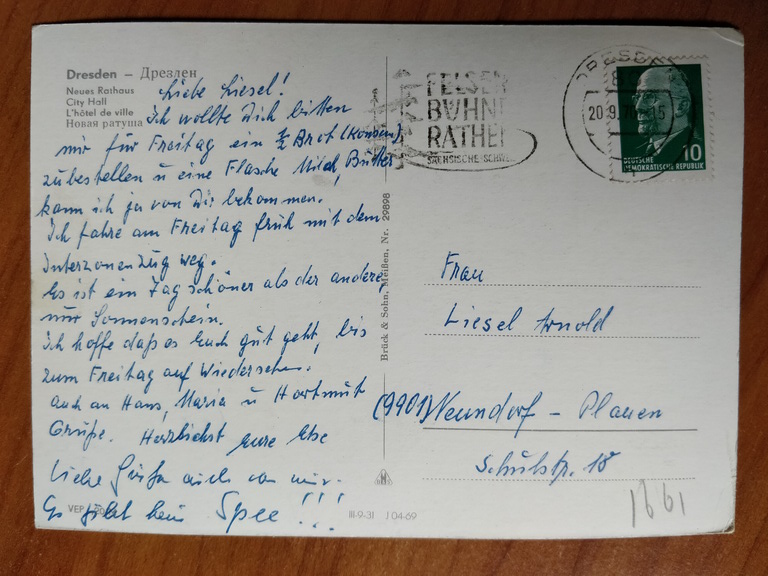 Dresden – Дрезден
Neues Rathaus
City Hall
L'hôtel de ville
Новая ратуша
Liebe Liesel!
Ich wollte Dich bitten
mir für Freitag ein ½ Brot (Konsum)
zubestellen u eine Flasche Milch, Butter
kann ich ja von Dir bekommen.
Ich fahre am Freitag früh mit dem
Interzonenzug weg.
Es ist ein Tag schöner als der andere,
nur Sonnenschein.
Ich hoffe daß es Euch gut geht, bis
zum Freitag auf Wiedersehen.
Auch an Hans, Maria u Hartmut
Grüße. Herzlichst Eure Ilse
Liebe Grüße auch von mir.
Es gibt kein Spee!!!
VEP
III-9-31 J 04-69
Brück & Sohn, Meißen, Nr. 29898
FELSEN
BÜHNE
RATHEN
SÄCHSISCHE SCHWEIZ
DRESDEN
20.9.
DEUTSCHE
DEMOKRATISCHE REPUBLIK
10
Frau
Liesel Arnold
(9901) Neundorf – Plauen
Schulstr. 18
1661